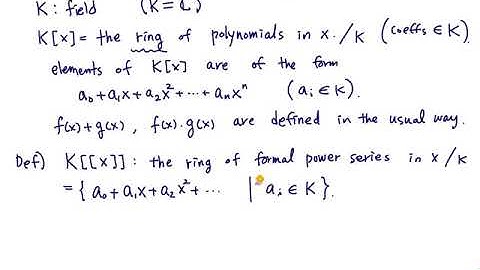 K : field (K = ℂ)
K[x] = the ring of polynomials in x /K (coeffs ∈ K)
elements of K[x] are of the form
a₀ + a₁x + a₂x² + ⋯ + aₙxⁿ (aᵢ ∈ K).
f(x) + g(x), f(x)·g(x) are defined in the usual way.
Def) K[[x]] : the ring of formal power series in x /K
= { a₀ + a₁x + a₂x² + ⋯ | aᵢ ∈ K }.